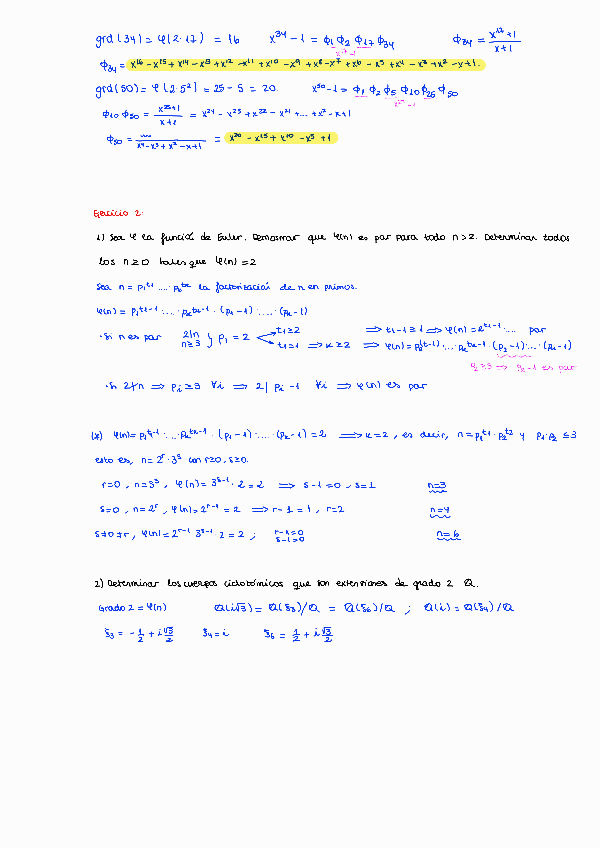 grd(34) = φ(2·17) = 16   x³⁴ − 1 = ϕ₁ ϕ₂ ϕ₁₇ ϕ₃₄   ϕ₃₄ = (x¹⁷+1)/(x+1)
x¹⁷−1
ϕ₃₄ = x¹⁶ − x¹⁵ + x¹⁴ − x¹³ + x¹² − x¹¹ + x¹⁰ − x⁹ + x⁸ − x⁷ + x⁶ − x⁵ + x⁴ − x³ + x² − x + 1.
grd(50) = φ(2·5²) = 25 − 5 = 20.   x⁵⁰ − 1 = ϕ₁ ϕ₂ ϕ₅ ϕ₁₀ ϕ₂₅ ϕ₅₀
x²⁵−1
ϕ₁₀ ϕ₅₀ = (x²⁵+1)/(x+1) = x²⁴ − x²³ + x²² − x²¹ + ... + x² − x + 1
ϕ₅₀ = /(x⁴−x³+x²−x+1) = x²⁰ − x¹⁵ + x¹⁰ − x⁵ + 1
Ejercicio 2:
1) Sea φ la función de Euler. Demostrar que φ(n) es par para todo n > 2. Determinar todos
los n ≥ 0 tales que φ(n) = 2
Sea n = p₁^t₁ ..... pₖ^tₖ la factorización de n en primos.
φ(n) = p₁^t₁−1 ..... pₖ^tₖ−1 · (p₁−1) ..... (pₖ−1)
· Si n es par   2|n n≥3 } p₁ = 2   t₁≥2   ⟹ t₁−1 ≥ 1 ⟹ φ(n) = 2^t₁−1 ..... par
t₁=1 ⟹ k≥2 ⟹ φ(n) = p₂^(t₂−1) ..... pₖ^tₖ−1 · (p₂−1) ..... (pₖ−1)
p₂ ≥ 3 ⟹ p₂−1 es par
· Si 2∤n ⟹ pᵢ ≥ 3 ∀i ⟹ 2 | pᵢ −1 ∀i ⟹ φ(n) es par
(*) φ(n) = p₁^t₁−1 ..... pₖ^tₖ−1 · (p₁−1) ..... (pₖ−1) = 2 ⟹ k = 2, es decir, n = p₁^t₁ · p₂^t₂ y p₁·p₂ ≤ 3
esto es, n = 2ʳ · 3ˢ con r≥0, s≥0.
r=0, n=3ˢ, φ(n) = 3ˢ⁻¹ · 2 = 2 ⟹ s−1 = 0, s=1   n=3
s=0, n=2ʳ, φ(n) = 2ʳ⁻¹ = 2 ⟹ r−1 = 1, r=2   n=4
s≠0≠r, φ(n) = 2ʳ⁻¹ 3ˢ⁻¹ · 2 = 2; r−1=0 s−1=0   n=6
2) Determinar los cuerpos ciclotómicos que son extensiones de grado 2 ℚ.
Grado 2 = φ(n)   ℚ(i√3) = ℚ(ξ₃)/ℚ = ℚ(ξ₆)/ℚ ; ℚ(i) = ℚ(ξ₄)/ℚ
ξ₃ = −1/2 + i√3/2   ξ₄ = i   ξ₆ = 1/2 + i√3/2